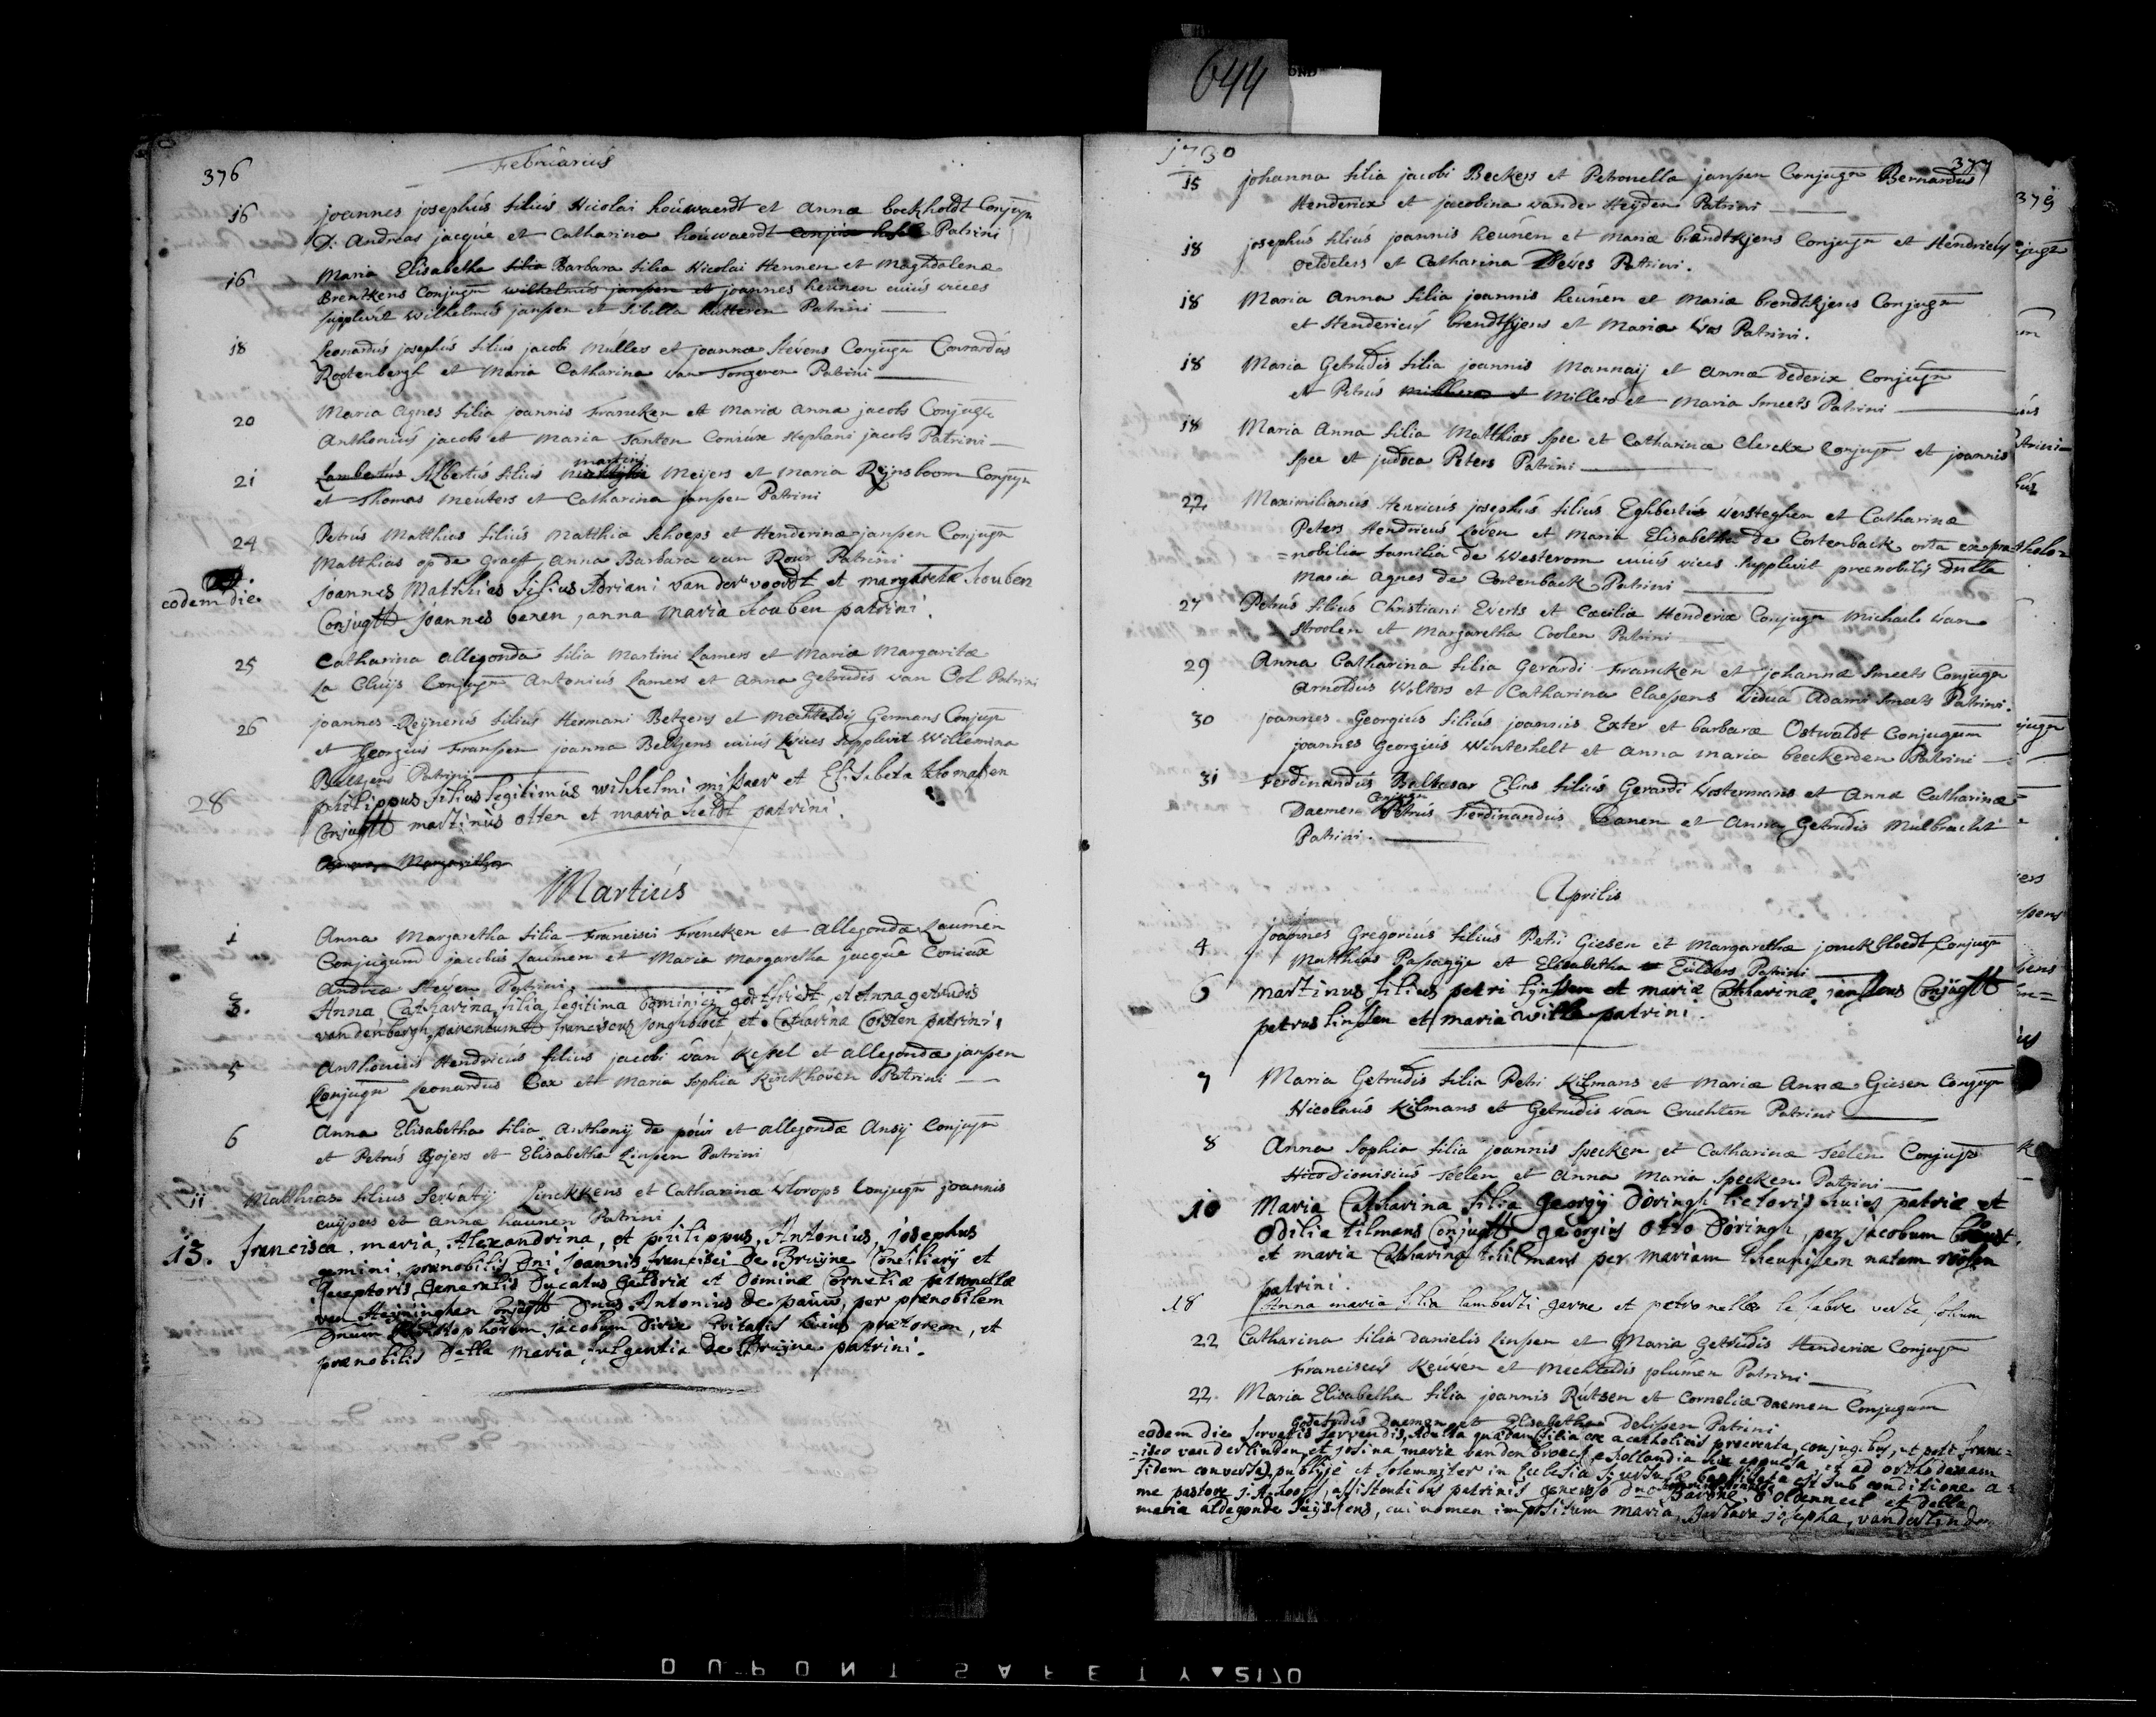 644
376
Februarius
16 joannes josephus filius Nicolai houwaerdt et Annæ bockholdt Conjugū
D. Andreas jacque et Catharina houwaerdt Patrini
16 Maria Elisabetha filia Barbara filia Nicolai Hennen et Maghdalenæ
Brentkens Conjugū wilhelmus janssen et joannes heunen cuius vices
supplevit Wilhelmus janssen et Sibilla Patrini
18 Leonardus josephus filius jacobi Mullers et joannæ Stevens Conjugū Conrardus
Rootenbergh et Maria Catharina van Tongeren Patrini
20 Maria Agnes filia joannis Francken et Mariæ Annæ jacobs Conjugū
Anthonius jacobs et Maria Tanton Coniux Stephani jacobs Patrini
martini
21 Lambertus Albertus filius Meijers et Maria Rijnsboom Conjugū
et Thomas Meuters et Catharina janssen Patrini
24 Petrus Matthias filius Matthiæ Schoeps et Henderinæ janssen Conjugū
Matthias op de Graeff, Anna Barbara van Rour Patrini
eodem die. joannes Matthias filius Adriani van der voordt et margaretæ Houben
Conjugū joannes benen, anna maria houben patrini.
25 Catharina Allegonda filia Martini Lamers et Mariæ Margaritæ
La Cluijs Conjugū Antonius Lamers et Anna Getrudis van Ool Patrini
26 joannes Reijnerus filius Hermani Betzers et Mechteldis Germans Conjugū
et Georgius Franssen joanna Beltjens cuius vices supplevit Willemina
Beltjens Patrini
28 philippus filius legitimus wilhelmi missaer et Elisabeta thomassen
Conjugū martinus otten et maria heldt patrini.
Margaritha
Martius
1 Anna Margaretha filia Francisci Frencken et Allegondæ Laumen
Conjugum jacobus Laumen et Maria Margaretha jacque Coniux
Andreæ Steven Patrini.
3. Anna Catharina filia legitima Dominici godtfriedt, et Anna getrudis
vandenbergh, parentum franciscus jonghbloet et Catharina Corsten patrini.
5 Anthonius Hendricus filius jacobi van Kessel et allegondæ janssen
Conjugū Leonardus Cox et Maria Sophia Kirckhoven Patrini
6 Anna Elisabetha filia Anthonij de pour et allegondæ Ansij Conjugū
et Petrus Rojers et Elisabetha Linssen Patrini
11 Matthias filius Servatij Linckkens et Catharinæ Vlorops Conjugū joannis
cuijpers et Annæ haunen Patrini
13. francisca, maria, Alexandrina, et philippus, Antonius, josephus
gemini prænobilis Dni joannis francisci De Bruijne Consiliarij et
Receptoris Generalis Ducatus Gelriæ et Dominæ Corneliæ petronellæ
van Heijninghen Conjugū Dnus Antonius de pauw, per prænobilem
Dnum Christophorum jacobum civitatis huius prætorem, et
prænobilis Dlla Maria de Bruijne patrini.
1730
377
15 johanna filia jacobi Beckers et Petronella janssen Conjugū Bernardus
Henderix et jacobina vander Heyden Patrini
18 josephus filius joannis heunen et Mariæ brendtkjens Conjugū et Hendricus
Oeldelers et Catharina Drewes Patrini.
18 Maria Anna filia joannis heunen et Mariæ brendtkjens Conjugū
et Hendericus brendtkjens et Maria Vos Patrini.
18 Maria Getrudis filia joannis Mannaij et Annæ Dederix Conjugū
et Petrus Millers et Maria Smeets Patrini
18 Maria Anna filia Matthiæ Spee et Catharinæ Clerckx Conjugū et joannis
Spee et judoca Peters Patrini
22 Maximilianus Henricus josephus filius Eghbertus Versteghen et Catharinæ
Peters Hendricus Loven et Maria Elisabetha de Cortenback orta ex præ
=nobilia familia de Westerom cuius vices supplevit prænobilis Dnlla
Maria Agnes de Cortenback Patrini
27 Petrus filius Christiani Everts et Cæciliæ Henderix Conjugū Michaele van
Stroolen et Margaretha Coolen Patrini
29 Anna Catharina filia Gerardi Francken et johannæ Smeets Conjugū
Arnoldus Wolters et Catharina Claessens Vidua Adami Smeets Patrini.
30 joannes Georgius filius joannis Exter et barbaræ Ostwaldt Conjugum
joannes Georgius Winterhelt et Anna Maria beeckerden Patrini
31 Ferdinandus Baltasar Elius filius Gerardi Vostermans et Annæ Catharinæ
Daemen Conjugū Petrus Ferdinandus Canen et Anna Getrudis Mulbracht
Patrini.
Aprilis
4 joannes Gregorius filius Petri Giesen et Margarethæ jonckbloedt Conjugū
Matthias Passagije et Elisabetha Eulders Patrini
6 martinus filius petri linssen et mariæ Catharinæ janssens Conjugū
petrus linssen et maria wille patrini.
7 Maria Getrudis filia Petri Kilmans et Mariæ Annæ Giesen Conjugū
Nicolaus Kilmans et Getrudis van Cruchten Patrini
8 Anna Sophia filia joannis Specken et Catharinæ Teelen Conjugū
Dionisius Teelen et Anna Maria Specken Patrini
10 Maria Catharina filia Georgij Doringh lictoris huius patriæ et
Odiliæ tilmans Conjugū georgius otto Doringh, per jacobum
et maria Catharina tilmans per mariam theunissen natam
patrini.
18 Anna maria filia lamberti gerne et petronellæ le febre verte folium
22 Catharina filia Danielis Linssen et Maria Getrudis Henderix Conjugū
Franciscus Keuven et Mechteldis plumen Patrini
22. Maria Elisabetha filia joannis Rutsen et Corneliæ Daemen Conjugum
Godefridus Daemen et Elisabetha Delissen Patrini
eodem die servatis servandis, Adulta quædam (filia ex acatholicis procreata, conjugibus, ut pote franc=
=isco van der linden, et josina maria van den broeck, e hollandia huc appulsa, et ad orthodoxam
fidem conversa) publice et solemniter in Ecclesia baptizata est sub conditione a
me pastore assistentibus patrinis generoso Dno Barone d'Oldenneel et Della
maria aldegonde cui nomen impositum maria, Barbara josepha, vander linden
DUPONT SAFETY 2170